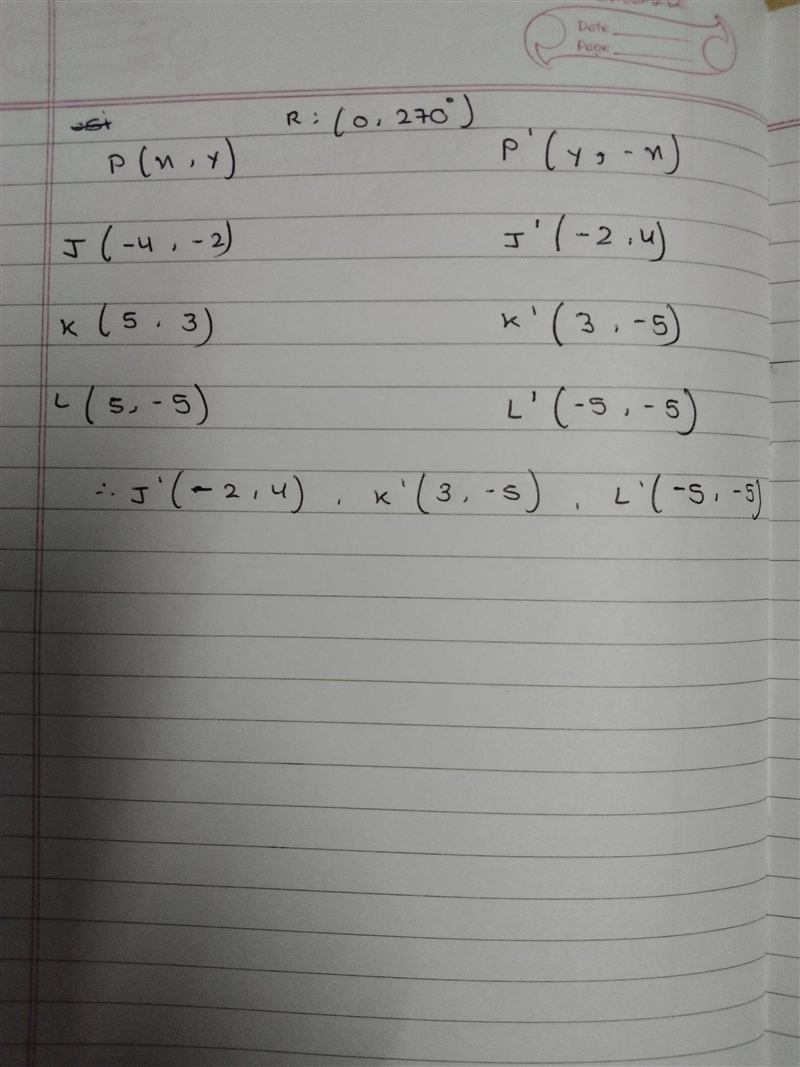 Date
Page
R: (0, 270°)
P(x, y) P'(y, -x)
J(-4, -2) J'(-2, 4)
K(5, 3) K'(3, -5)
L(5, -5) L'(-5, -5)
∴ J'(-2, 4), K'(3, -5), L'(-5, -5)